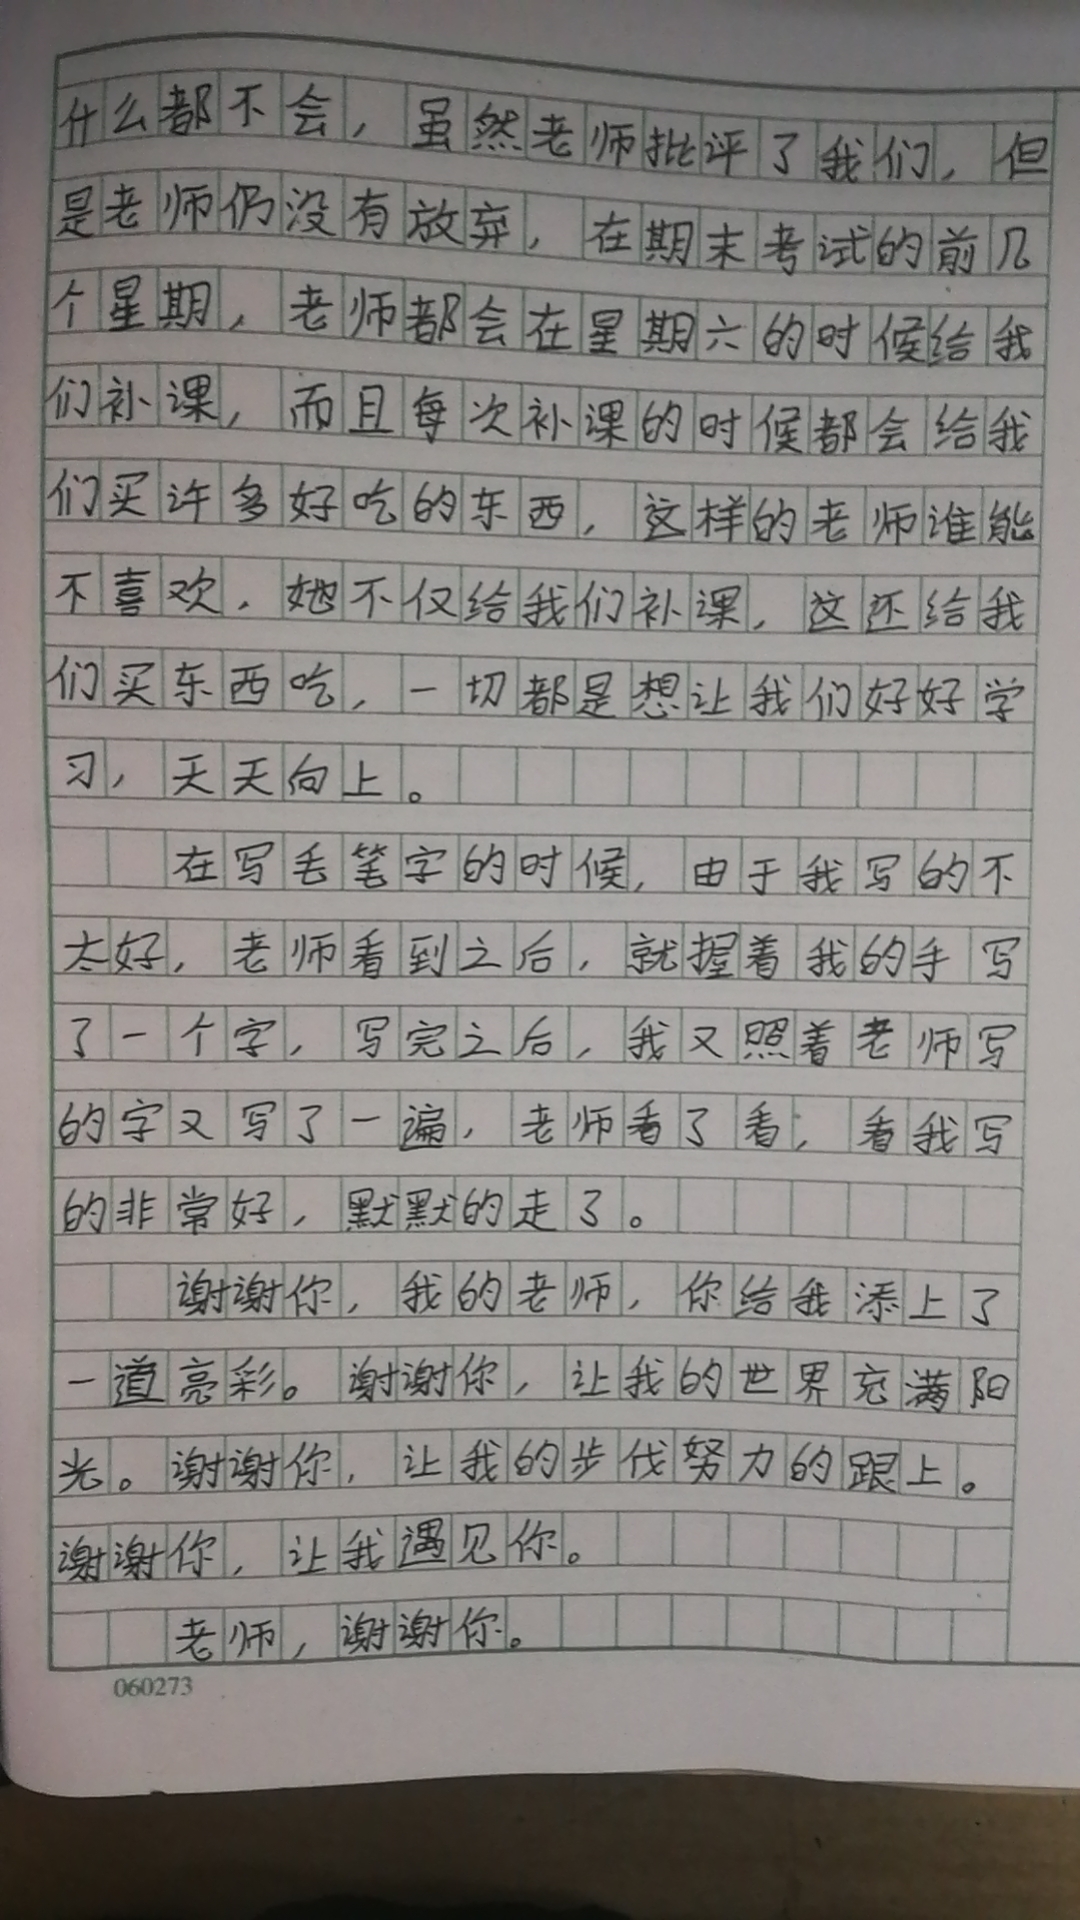 什么都不会，虽然老师批评了我们，但
是老师仍没有放弃，在期末考试的前几
个星期，老师都会在星期六的时候给我
们补课，而且每次补课的时候都会给我
们买许多好吃的东西，这样的老师谁能
不喜欢，她不仅给我们补课，这还给我
们买东西吃，一切都是想让我们好好学
习，天天向上。
在写毛笔字的时候，由于我写的不
太好，老师看到之后，就握着我的手写
了一个字，写完之后，我又照着老师写
的字又写了一遍，老师看了看，看我写
的非常好，默默的走了。
谢谢你，我的老师，你给我添上了
一道亮彩。谢谢你，让我的世界充满阳
光。谢谢你，让我的步伐努力的跟上。
谢谢你，让我遇见你。
老师，谢谢你。
060273